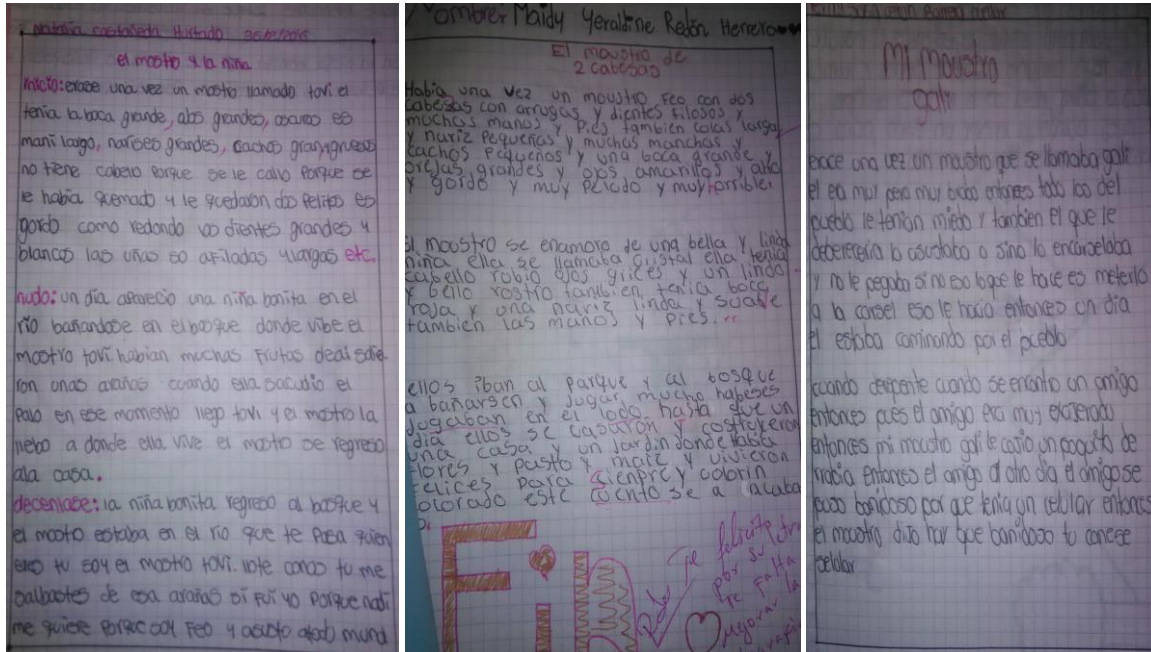 Natalia castañeda Hurtado
el mostro y la niña
inicio: erase una vez un mostro llamado tovi el
tenia la boca grande, ojos grandes, oscuro es
mani largo, narises grandes, cachos gran y gruesos
no tiene cabelo porque se le callo porque se
le habia quemado y le quedaron dos pelitos es
gordo como redondo los dientes grandes y
blancos las uñas so afiladas y largas etc.
nudo: un dia aparecio una niña bonita en el
rio bañandose en el bosque donde vibe el
mostro tovi habian muchas frutas deai salie
ron unas arañas cuando ella sacudio el
palo en ese momento llego tovi y el mostro la
llebo a donde ella vive el mostro se regreso
ala casa.
decenlase: la niña bonita regreso al bosque y
el mostro estaba en el rio que te pasa quien
eres tu soy el mostro tovi. note conos tu me
salbastes de esa arañas si fui yo porque nadi
me quiere porque soy feo y asusto atodo mund
Nombre: Maidy Yeraldine Redón Herrero
El moustro de
2 cabesas
Habia una vez un moustro feo con dos
cabesas con arrugas y dientes filosos y
muchas manos y pies tambien colas larga
y nariz pequeñas y muchas manchas y
cachos pequeños y una boca grande y
orejas grandes y ojos amarillos y alto
y gordo y muy peludo y muy horrible.
El moustro se enamoro de una bella y linda
niña ella se llamaba cristal ella tenia
cabello robio ojos grices y un lindo
y bello rostro tambien tenia boca
roja y una nariz linda y suave
tambien las manos y pies.
ellos iban al parque y al bosque
a bañarsen y jugar mucho habeses
jogaban en el lodo hasta que un
dia ellos se casaron y costruyeron
una casa y un jardin donde habia
flores y pasto y maiz y vivieron
felices para sienpre y colorin
colorado este cuento se a acaba
do.
Fin
Te felicito
por su
te falta
mejorar la
Mi moustro
gali
erace una vez un moustro que se llamaba gali
el era muy pero muy brabo entonces todo los del
pueblo le tenian miedo y tambien el que le
la asustaba o sino lo encarselaba
y no le pegaba sino eso lo que le hace es meterlo
a la carsel eso le hacia entonces un dia
el estaba caminando por el pueblo
cuando derepente cuando se encontro un amigo
entonces pues el amigo era muy exajerado
entonces mi moustro gali le cojio un poquito de
rrabia entonces el amigo al otro dia el amigo se
puso banidoso por que tenia un celular entonces
el moustro dijo hay que banidoso tu con ese
selular